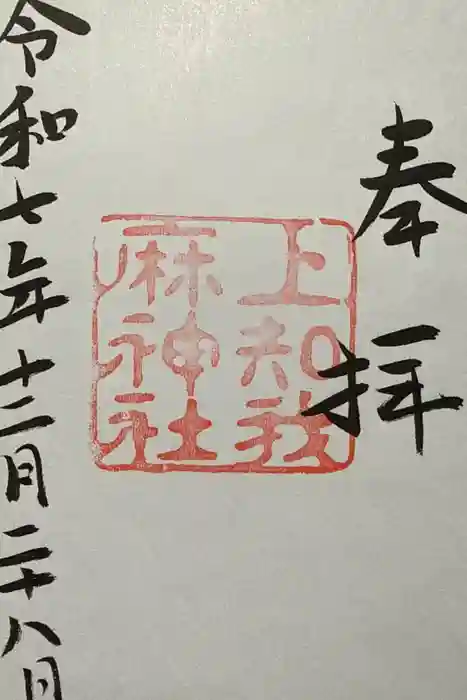 奉拝
上知我
麻神社
令和七年十二月二十八日